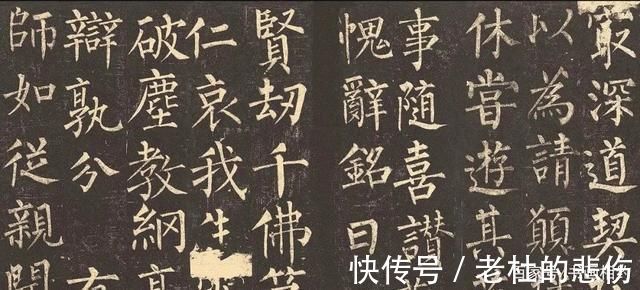 最深道契
以為請願
休嘗遊其
事隨喜讚
愧辭銘曰
賢劫千佛第
仁哀我生
破塵教綱高
辯孰分有
師如從親聞
快传号 / 老杜的悲伤